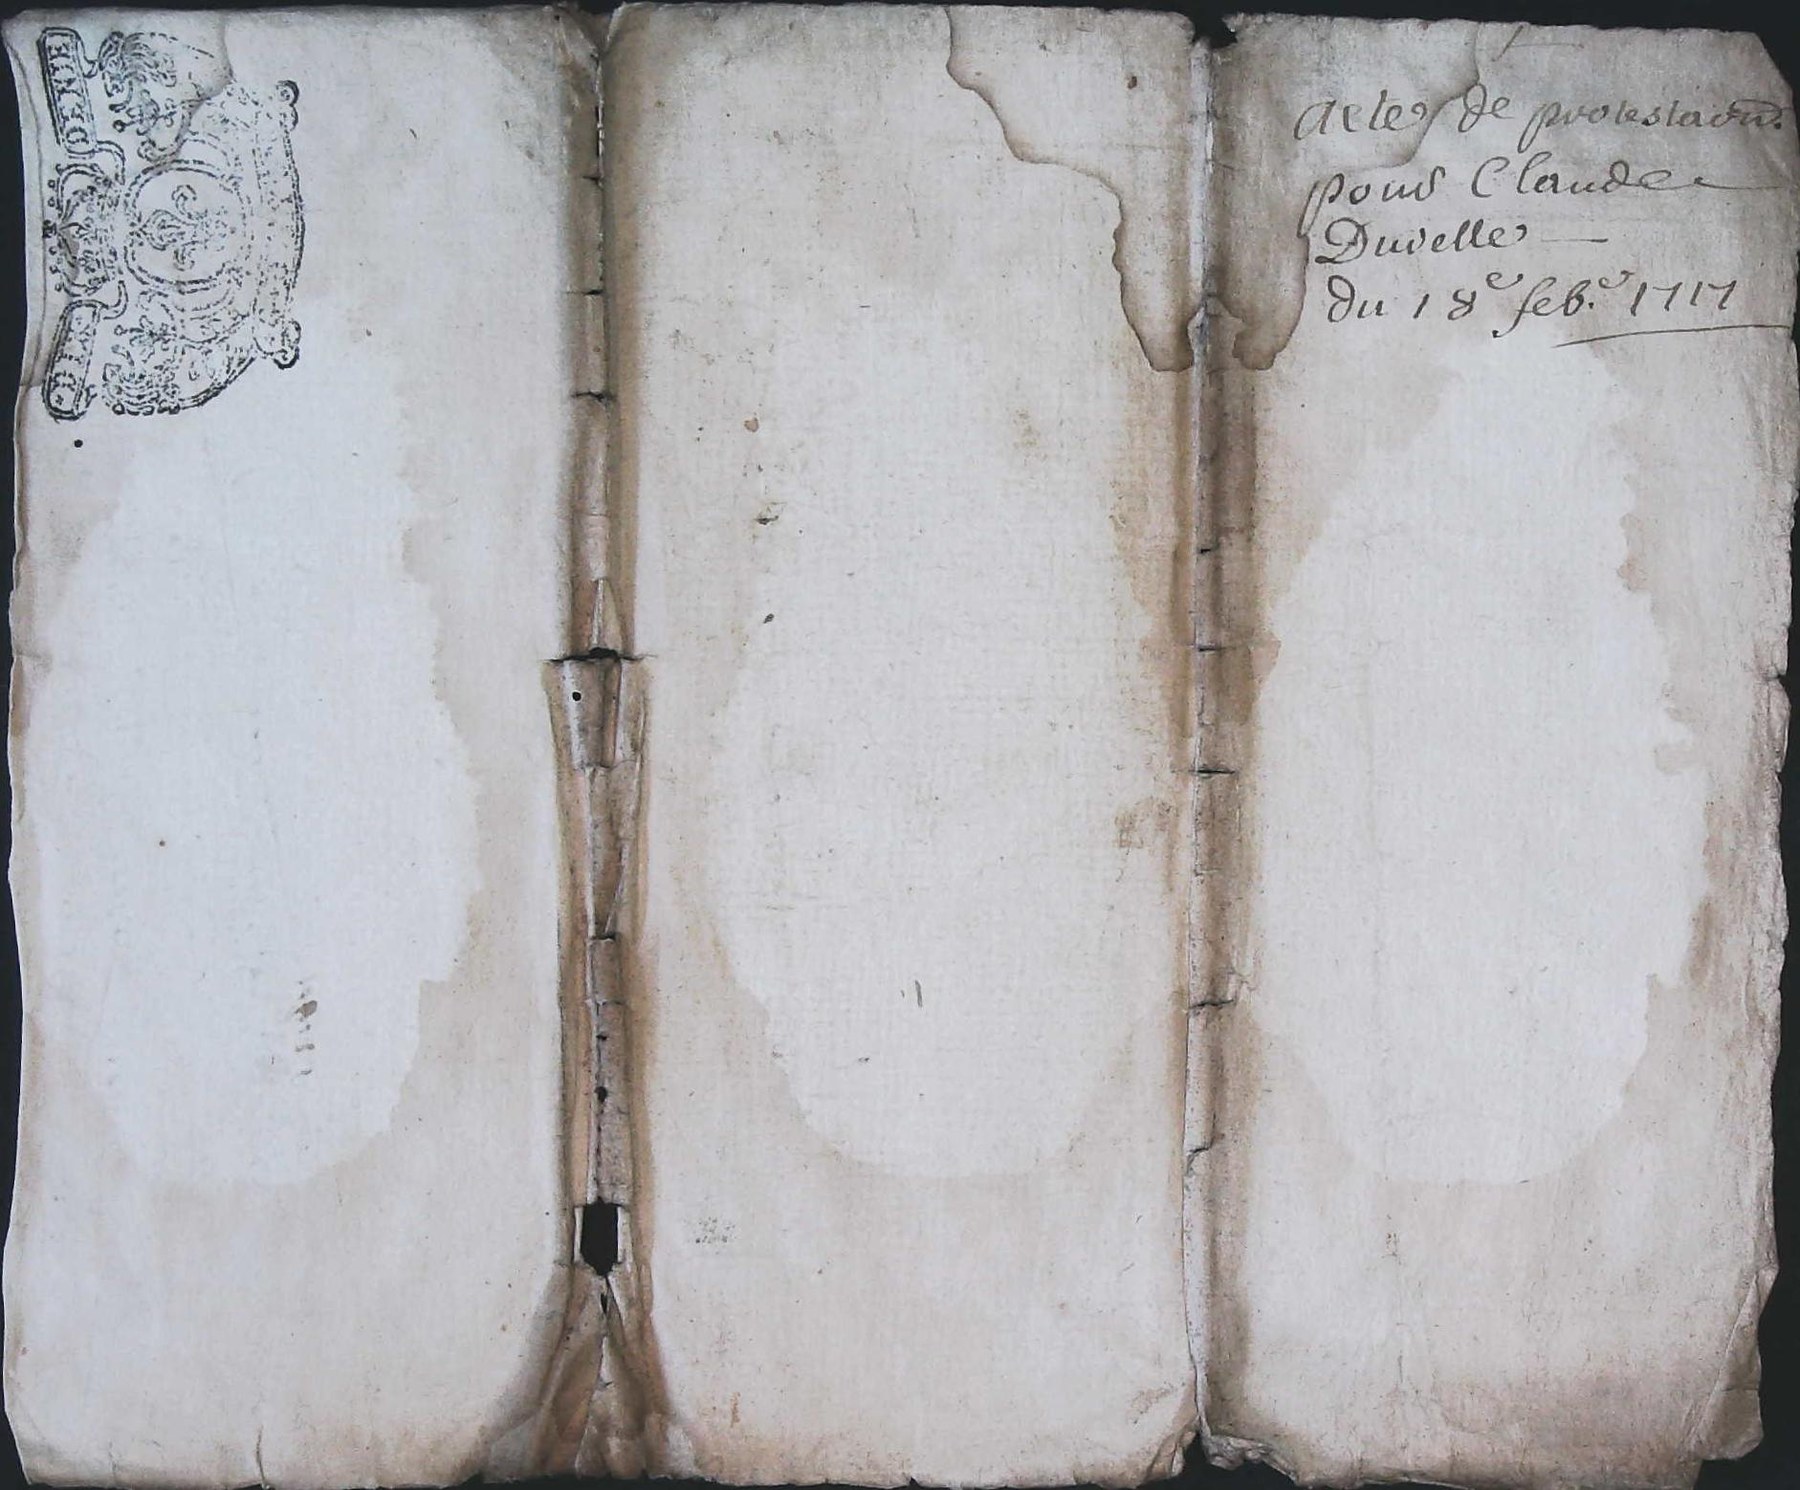 Acte de protestaõn.
pour Claude
Duvelle
du 18e feb.e 1717